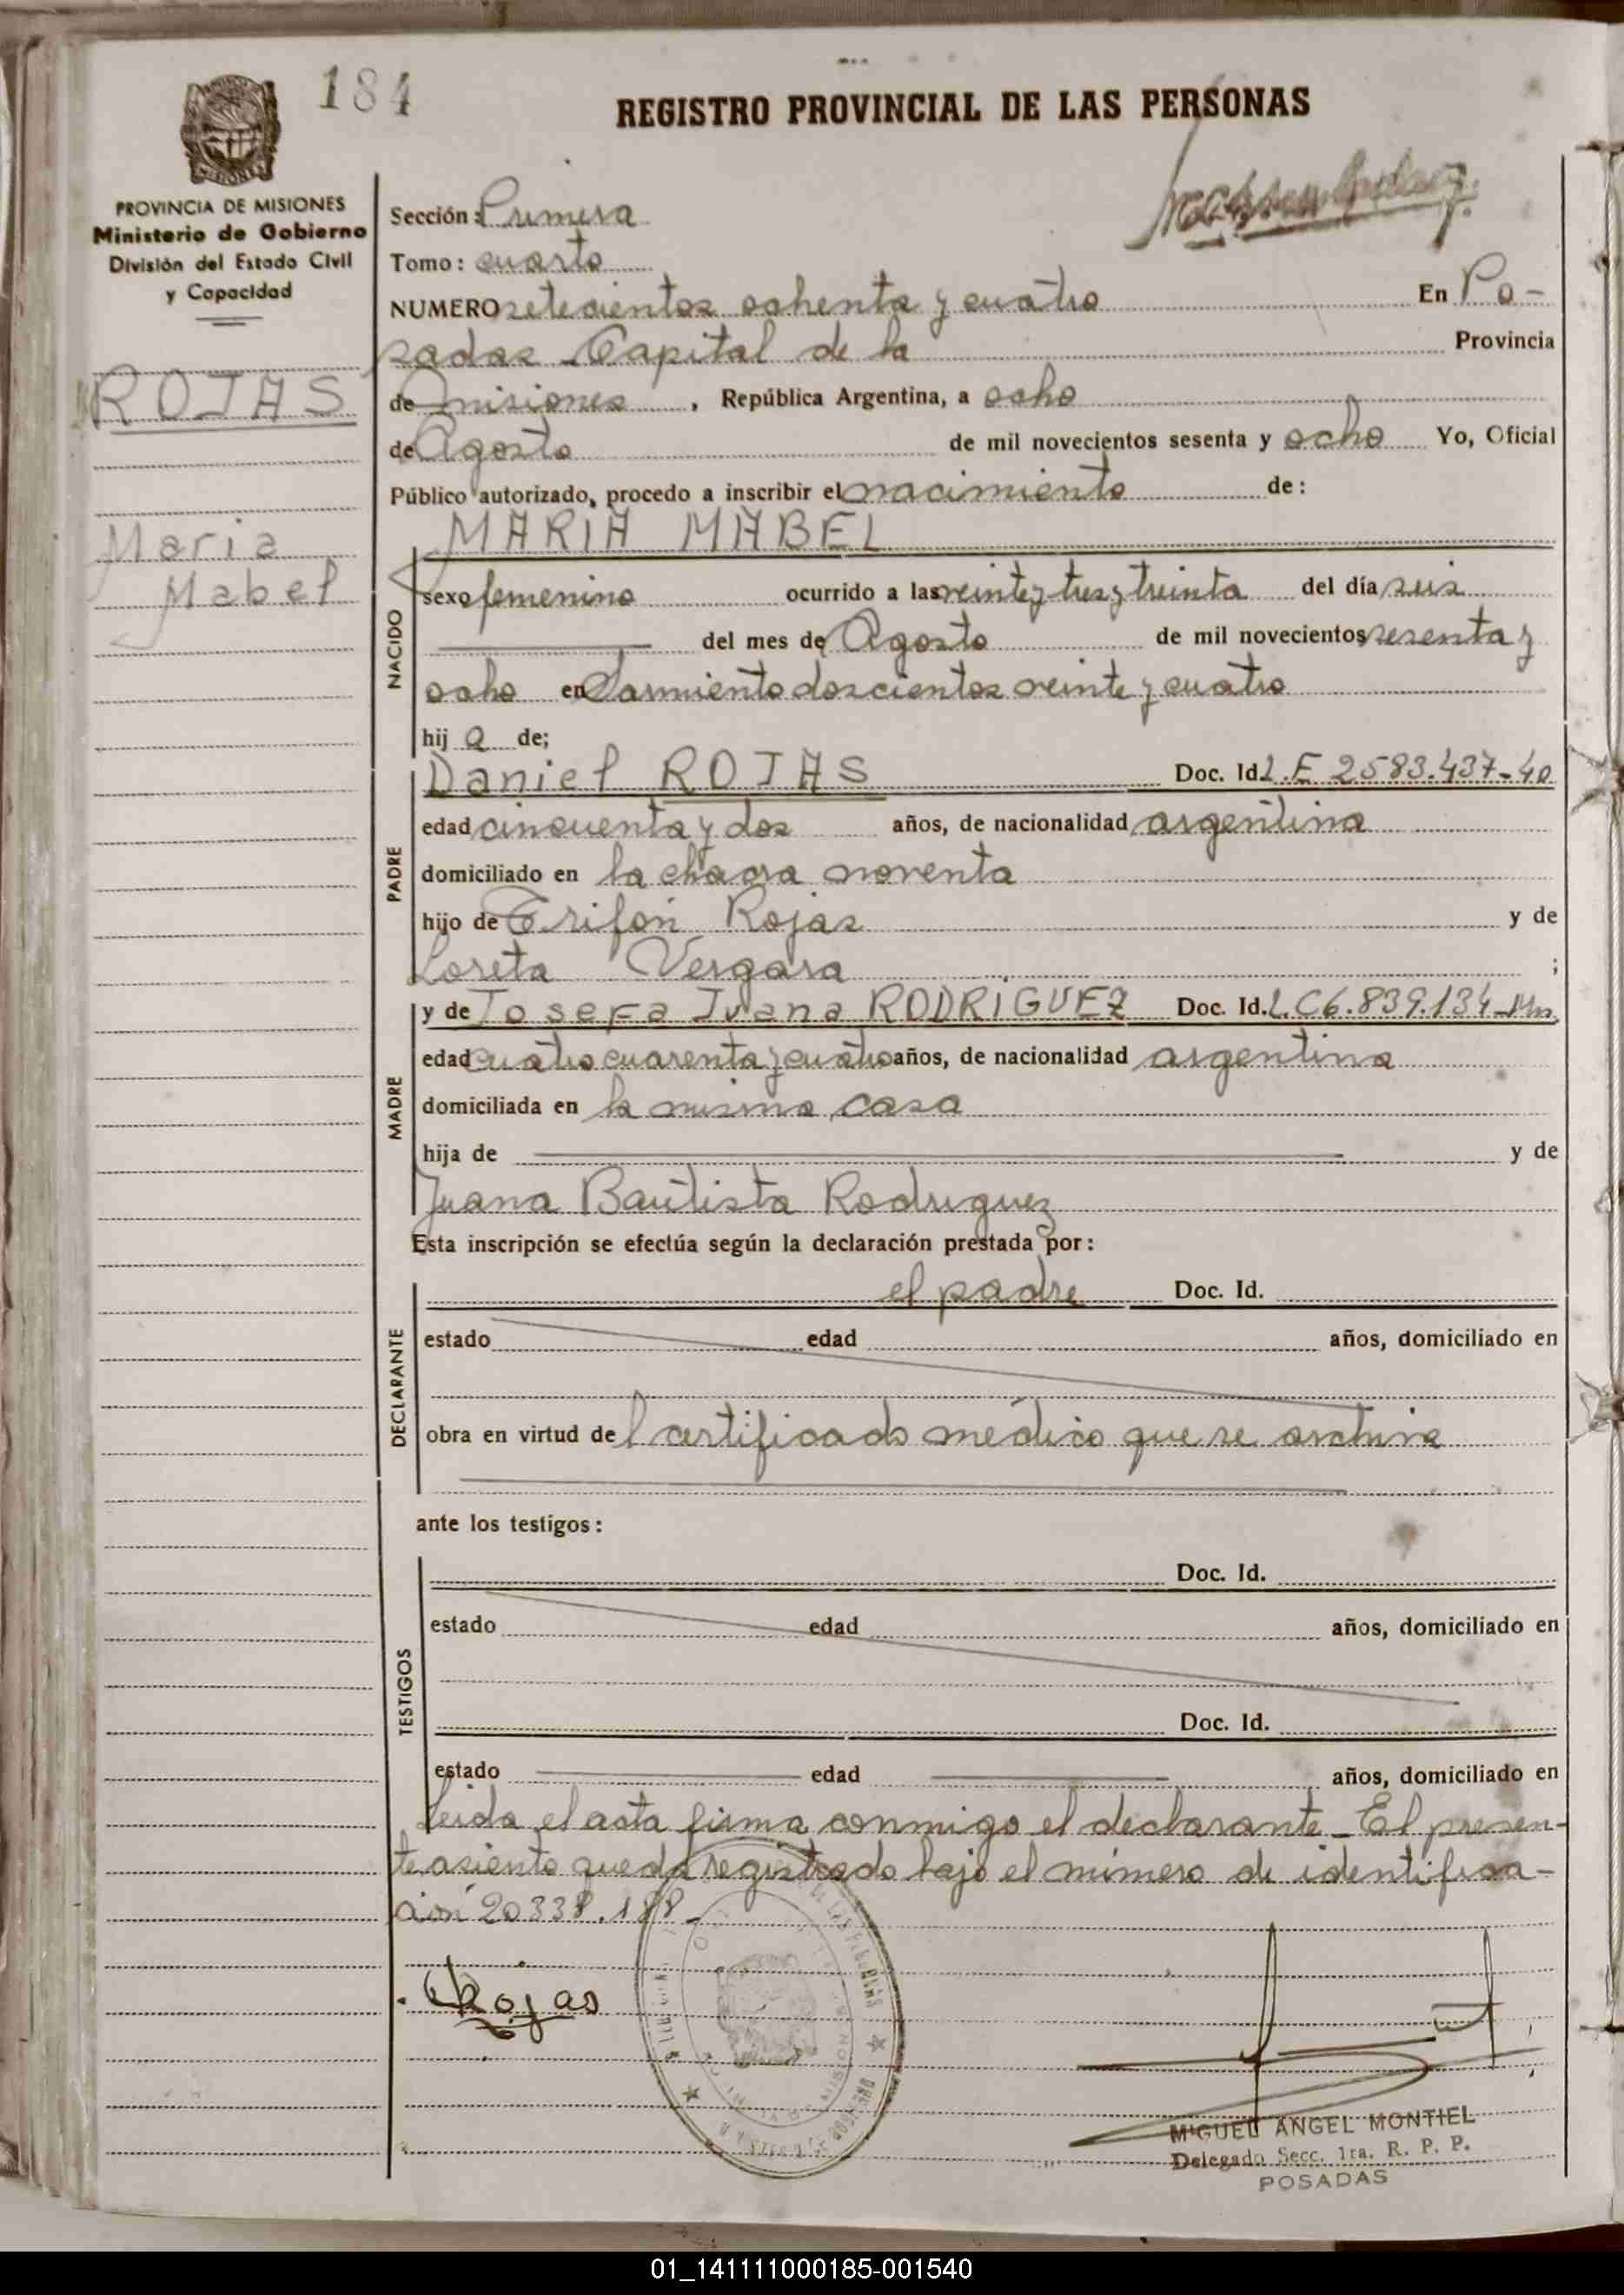 184
REGISTRO PROVINCIAL DE LAS PERSONAS
PROVINCIA DE MISIONES
Ministerio de Gobierno
División del Estado Civil
y Capacidad
ROJAS
Maria
Mabel
Sección: Primera
Tomo: cuarto
NUMERO setecientos ochenta y cuatro En Po-
sadas Capital de la Provincia
de misiones, República Argentina, a ocho
de Agosto de mil novecientos sesenta y ocho Yo, Oficial
Público autorizado, procedo a inscribir el nacimiento de:
MARIA MABEL
NACIDO
sexo femenino ocurrido a las veinte y tres y treinta del día seis
del mes de Agosto de mil novecientos sesenta y
ocho en Sarmiento doscientos veinte y cuatro
hija de;
PADRE
Daniel ROJAS Doc. Id. L.E 2583.437-40
edad cincuenta y dos años, de nacionalidad argentina
domiciliado en la chacra noventa
hijo de Trifón Rojas y de
Loreta Vergara ;
MADRE
y de Josefa Juana RODRIGUEZ Doc. Id. L.C6.839.134-Mn
edad cuatro cuarenta y cuatro años, de nacionalidad argentina
domiciliada en la misma casa
hija de y de
Juana Bautista Rodriguez
Esta inscripción se efectúa según la declaración prestada por:
DECLARANTE
el padre Doc. Id.
estado edad años, domiciliado en
obra en virtud del certificado médico que se archiva
ante los testigos:
TESTIGOS
Doc. Id.
estado edad años, domiciliado en
Doc. Id.
estado edad años, domiciliado en
Leida el acta firma conmigo el declarante - El presen-
te asiento queda registrado bajo el número de identifica-
ción 20338.188-
Rojas
MIGUEL ANGEL MONTIEL
Delegado Secc. 1ra. R. P. P.
POSADAS
01_141111000185-001540